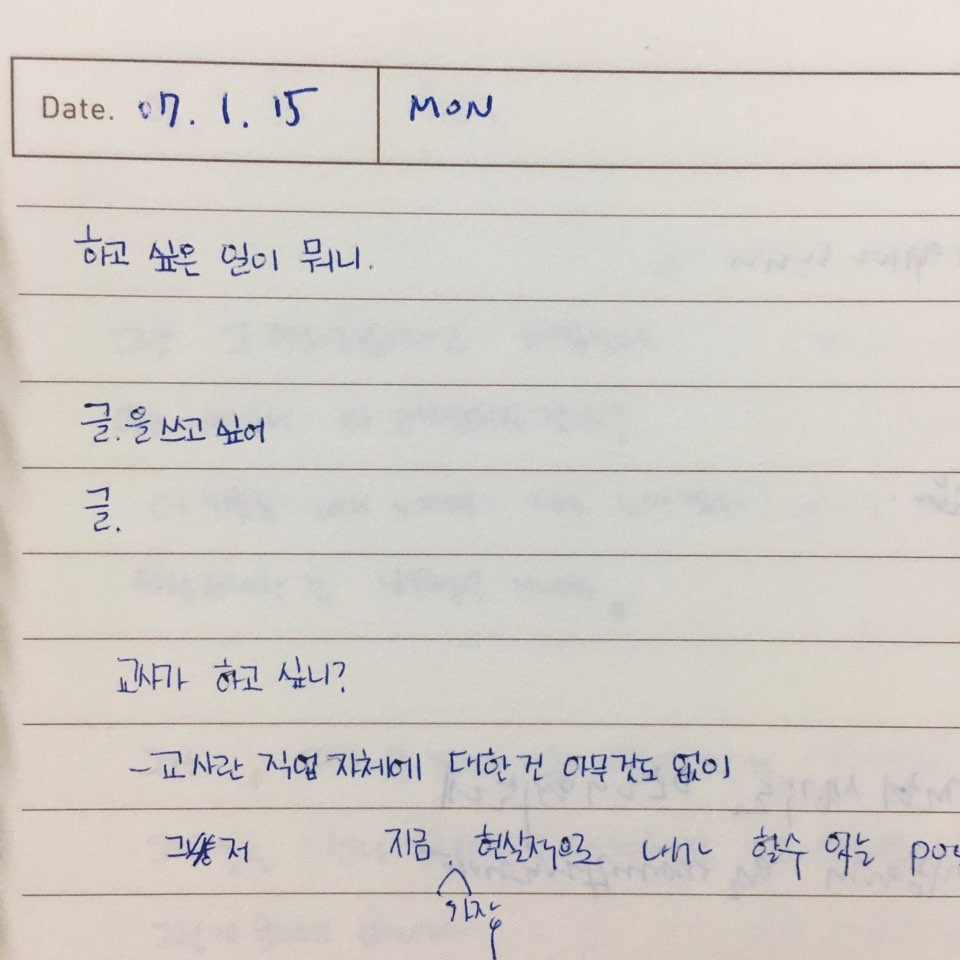 Date. 07. 1. 15 MON
하고 싶은 일이 뭐니.
글.을 쓰고 싶어
글.
교사가 하고 싶니?
- 교사란 직업 자체에 대한 건 아무것도 없이
그저 지금. 현실적으로 내가 할수 있는 pos
가장